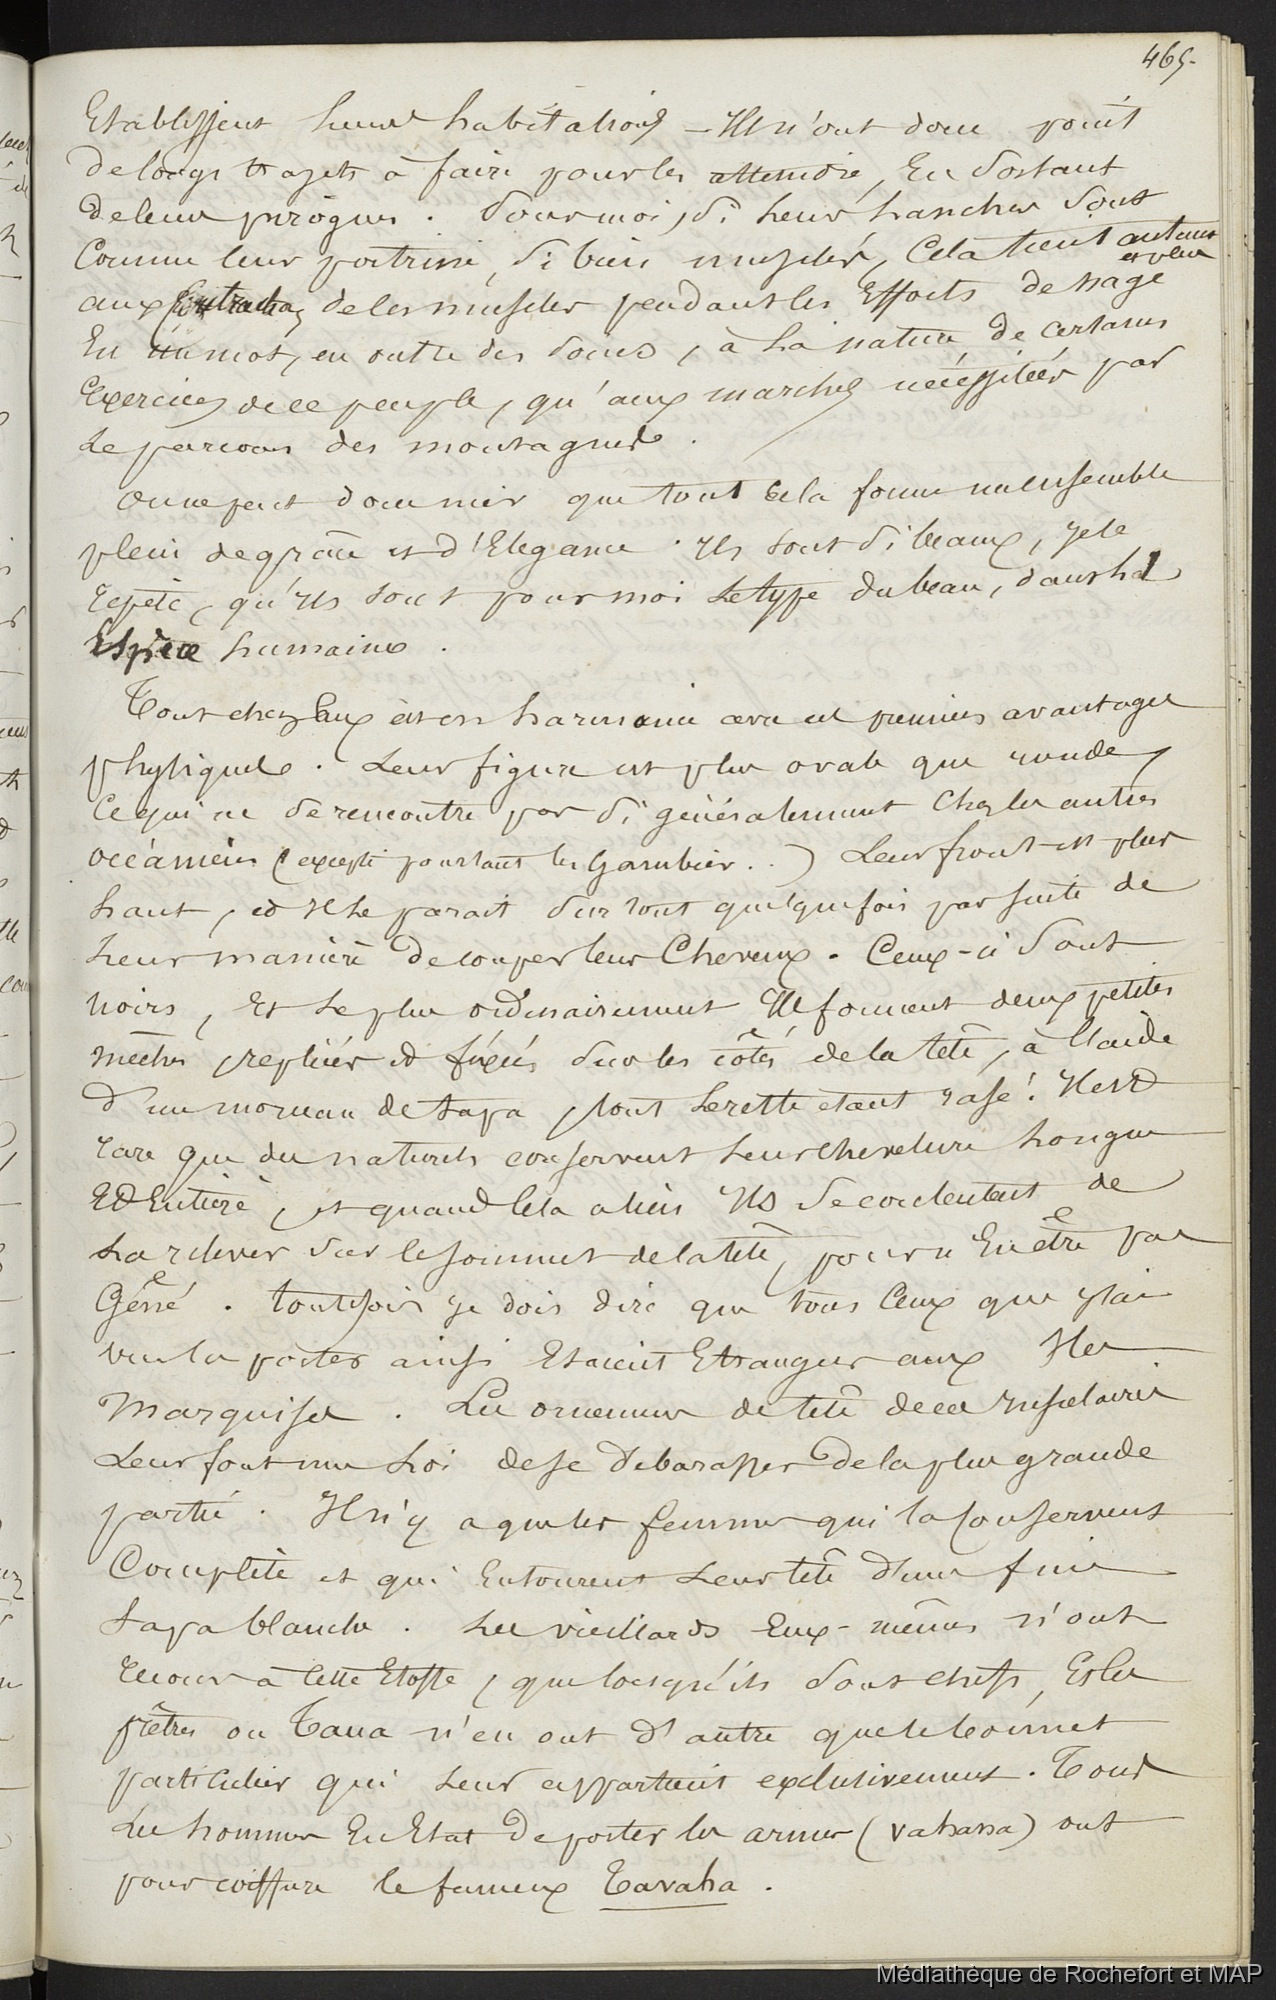 465.
Etablissent leurs habitations — Ils n'ont donc point
de longs trajets à faire pour les atteindre, En Sortant
de leurs pirogues. Pour moi, Si leurs hanches Sont
Comme leur poitrine, Si bien musclées, Cela tient autant
et plus
aux Contractions de les muscles pendant les Efforts de nage
En un mot, en outre des , à la nature de certains
Exercices de ce peuple, qu'aux marches nécessitées par
le parcours des montagnes.
On ne peut donc nier que tout cela forme un ensemble
plein de grâce et d'Elegance. Ils sont Si beaux, je le
repete, qu'ils sont pour moi le type du beau, dans la
Espèce humaine.
Tout chez Eux est en harmonie avec ces premiers avantages
physiques. Leur figure est plus ovale que ronde,
Ce qui ne Se rencontre pas Si généralement Chez les autres
océaniens (excepté pourtant les Gambier..) Leur front est plus
haut, et Il le parait Surtout quelquefois par suite de
leur manière de couper leur Cheveux. Ceux-ci Sont
noirs, Et le plus ordinairement Ils forment deux petites
mèches, repliées et fixées Sur les côtés de la tête, à l'aide
d'un morceau de tapa, tout le reste etant rasé! Il est
rare que des naturels conservent leur chevelure longue
Et Entière, et quand Cela a lieu Ils Se contentent de
la relever Sur le sommet de la tête, pour n'En être pas
Gêné. Toutefois je dois dire que tous Ceux que j'ai
vu la porter ainsi Etaient Etrangers aux Iles
Marquises. Les ornemens de tête de ces insulaires
Leur font une loi de se debarasser de la plus grande
partie. Il n'y a que les femmes qui la conservent
Complète et qui Entourent leur tête d'une fine
tapa blanche. Les vieillards Eux-mêmes n'ont
recours à cette Etoffe, que lorsqu'ils Sont chefs, Et les
prêtres ou Taua n'en ont d'autre que le bonnet
particulier qui leur appartient exclusivement. Tous
Les hommes En Etat de porter les armes (vahana) ont
pour coiffure le fameux Tavaha.
Médiathèque de Rochefort et MAP